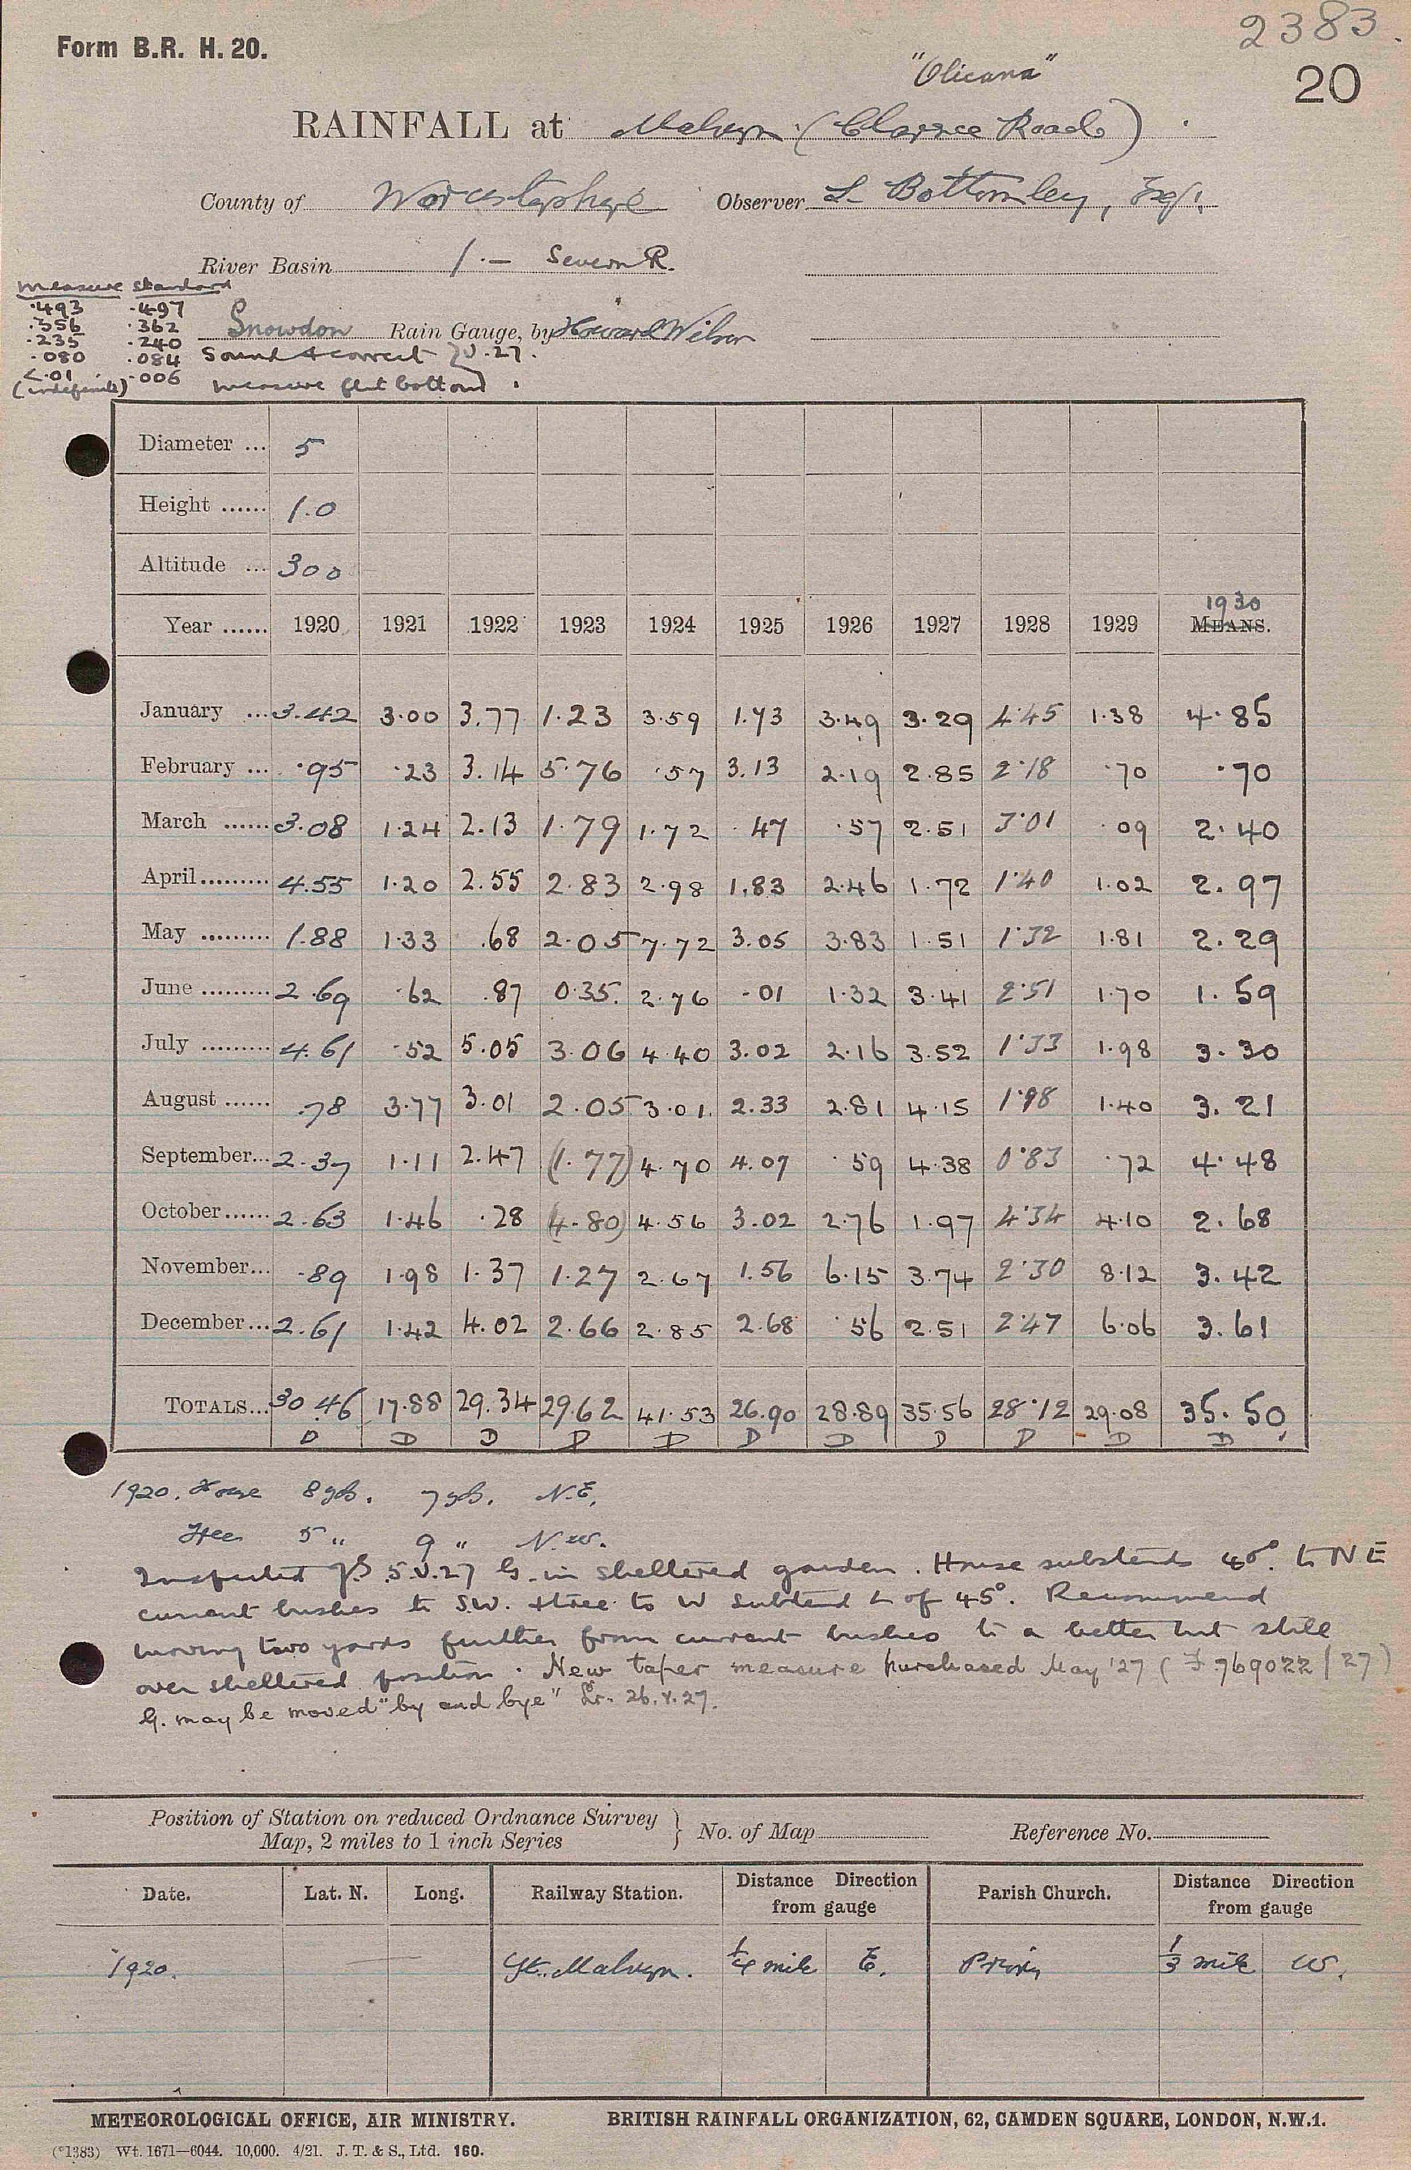 2383.
Form B.R. H. 20.
20
"Olicana"
RAINFALL at Malvern (Clarence Road)
County of Worcestershire Observer L. Bottomley, Esq.
River Basin 1.— Severn R.
measure standard
.493 .497
.356 .362
.235 .240
.080 .084
<.01 .006
(indefinite)
Snowdon Rain Gauge, by Howard Wilson
Sound & correct } V.27.
measure flat bottom
Diameter ... 5
Height ...... 1.0
Altitude ... 300
Year ...... 1920 1921 1922 1923 1924 1925 1926 1927 1928 1929 1930 MEANS.
January ... 3.42 3.00 3.77 1.23 3.59 1.73 3.49 3.29 4.45 1.38 4.85
February ... .95 .23 3.14 5.76 .57 3.13 2.19 2.85 2.18 .70 .70
March ...... 3.08 1.24 2.13 1.79 1.72 .47 .57 2.51 3.01 .09 2.40
April ......... 4.55 1.20 2.55 2.83 2.98 1.83 2.46 1.72 1.40 1.02 2.97
May ......... 1.88 1.33 .68 2.05 7.72 3.05 3.83 1.51 1.32 1.81 2.29
June ......... 2.69 .62 .87 0.35 2.76 .01 1.32 3.41 2.51 1.70 1.59
July ......... 4.61 .52 5.05 3.06 4.40 3.02 2.16 3.52 1.33 1.98 3.30
August ...... .78 3.77 3.01 2.05 3.01 2.33 2.81 4.15 1.98 1.40 3.21
September... 2.37 1.11 2.47 (1.77) 4.70 4.07 .59 4.38 0.83 .72 4.48
October ...... 2.63 1.46 .28 (4.80) 4.56 3.02 2.76 1.97 4.34 4.10 2.68
November... .89 1.98 1.37 1.27 2.67 1.56 6.15 3.74 2.30 8.12 3.42
December ... 2.61 1.42 4.02 2.66 2.85 2.68 .56 2.51 2.47 6.06 3.61
TOTALS... 30.46 17.88 29.34 29.62 41.53 26.90 28.89 35.56 28.12 29.08 35.50
D D D D D D D D D D D
1920. House 8 yds. 7 yds. N.E.
Tree 5 " 9 " N.W.
Inspected 5.V.27 G. in sheltered garden. House subtends 40° to NE
currant bushes to S.W. & tree to W subtend ∠ of 45°. Recommend
moving two yards further from currant bushes to a better but still
over sheltered position. New taper measure purchased May '27 (769022/27)
G. may be moved "by and bye" Lr. 26.V.27.
Position of Station on reduced Ordnance Survey
Map, 2 miles to 1 inch Series } No. of Map Reference No.
Date. Lat. N. Long. Railway Station. Distance Direction from gauge Parish Church. Distance Direction from gauge
1920. Gt. Malvern. 1/4 mile E. Priory 1/3 mile W.
METEOROLOGICAL OFFICE, AIR MINISTRY. BRITISH RAINFALL ORGANIZATION, 62, CAMDEN SQUARE, LONDON, N.W.1.
(*1383) Wt. 1671—6044. 10,000. 4/21. J. T. & S., Ltd. 160.